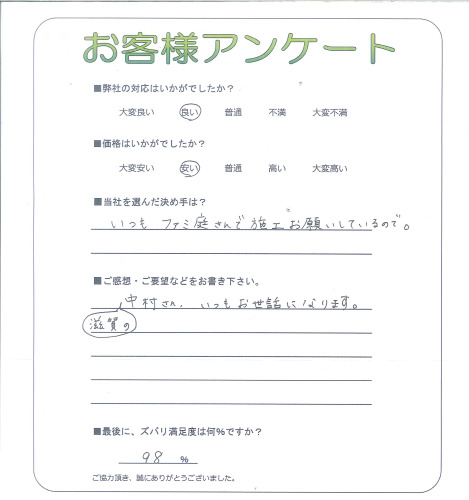 お客様アンケート
■弊社の対応はいかがでしたか？
大変良い 良い 普通 不満 大変不満
■価格はいかがでしたか？
大変安い 安い 普通 高い 大変高い
■当社を選んだ決め手は？
いつも ファミ庭さんで施工お願いしているので。
■ご感想・ご要望などをお書き下さい。
滋賀の
中村さん、いつもお世話になります。
■最後に、ズバリ満足度は何%ですか？
98 %
ご協力頂き、誠にありがとうございました。